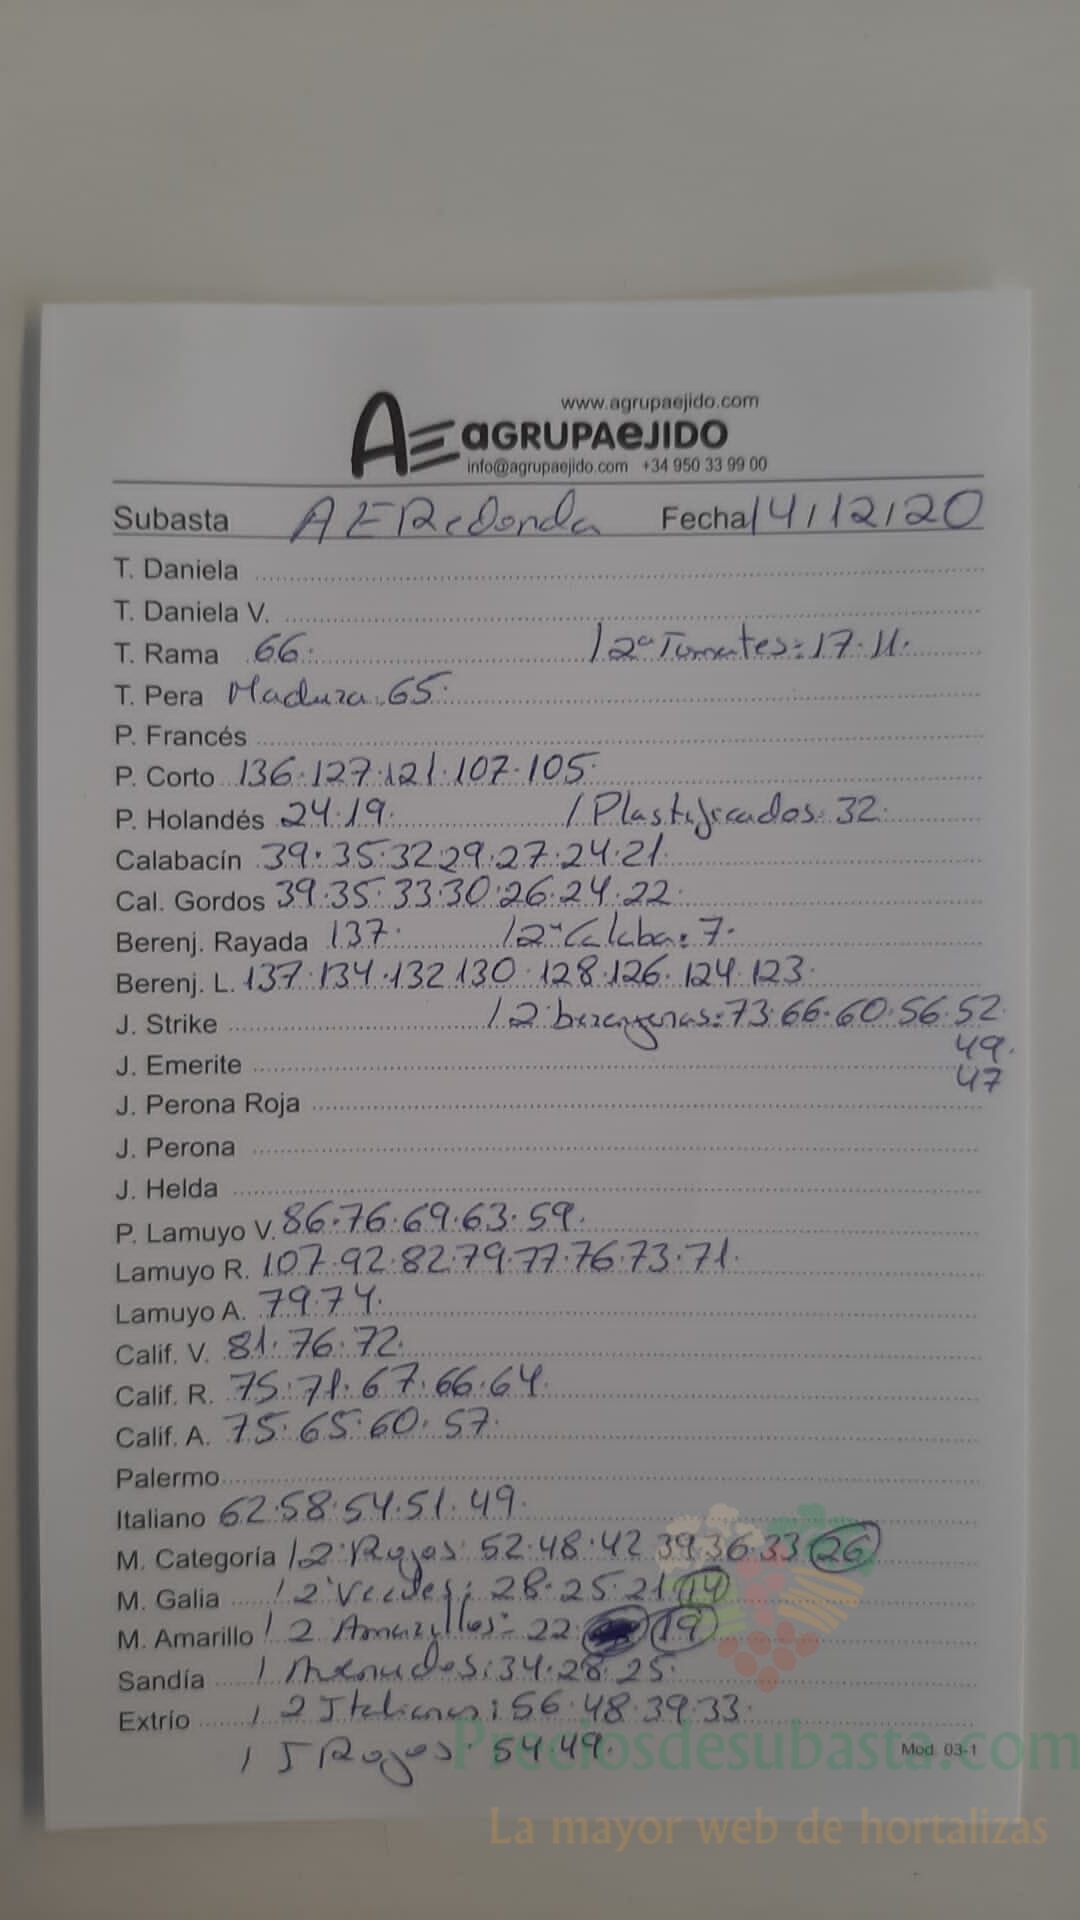 www.agrupaejido.com
AE aGRUPAeJIDO
info@agrupaejido.com +34 950 33 99 00
Subasta AE Redonda Fecha 14/12/20
T. Daniela
T. Daniela V.
T. Rama 66. /2ª Tomates: 17.11.
T. Pera Madura.65.
P. Francés
P. Corto 136.127.121.107.105.
P. Holandés 24.19. /Plastificados: 32.
Calabacín 39.35.32.29.27.24.21.
Cal. Gordos 39.35.33.30.26.24.22.
Berenj. Rayada 137. /2ª Calaba: 7.
Berenj. L. 137.134.132.130.128.126.124.123.
J. Strike /2ª berengenas: 73.66.60.56.52.
49.
J. Emerite 47
J. Perona Roja
J. Perona
J. Helda
P. Lamuyo V. 86.76.69.63.59.
Lamuyo R. 107.92.82.79.77.76.73.71.
Lamuyo A. 79.74.
Calif. V. 81.76.72.
Calif. R. 75.71.67.66.64.
Calif. A. 75.65.60.57.
Palermo
Italiano 62.58.54.51.49.
M. Categoría /2ª Rojos: 52.48.42.39.36.33 26
M. Galia /2ª Verdes: 28.25.21 14
M. Amarillo /2 Amarillos: 22. 19
Sandía / Menudos: 34.28.25.
Extrío / 2 Italianos: 56.48.39.33.
/ I Rojos: 54.49.
Mod. 03-1
Preciosdesubasta.com
La mayor web de hortalizas